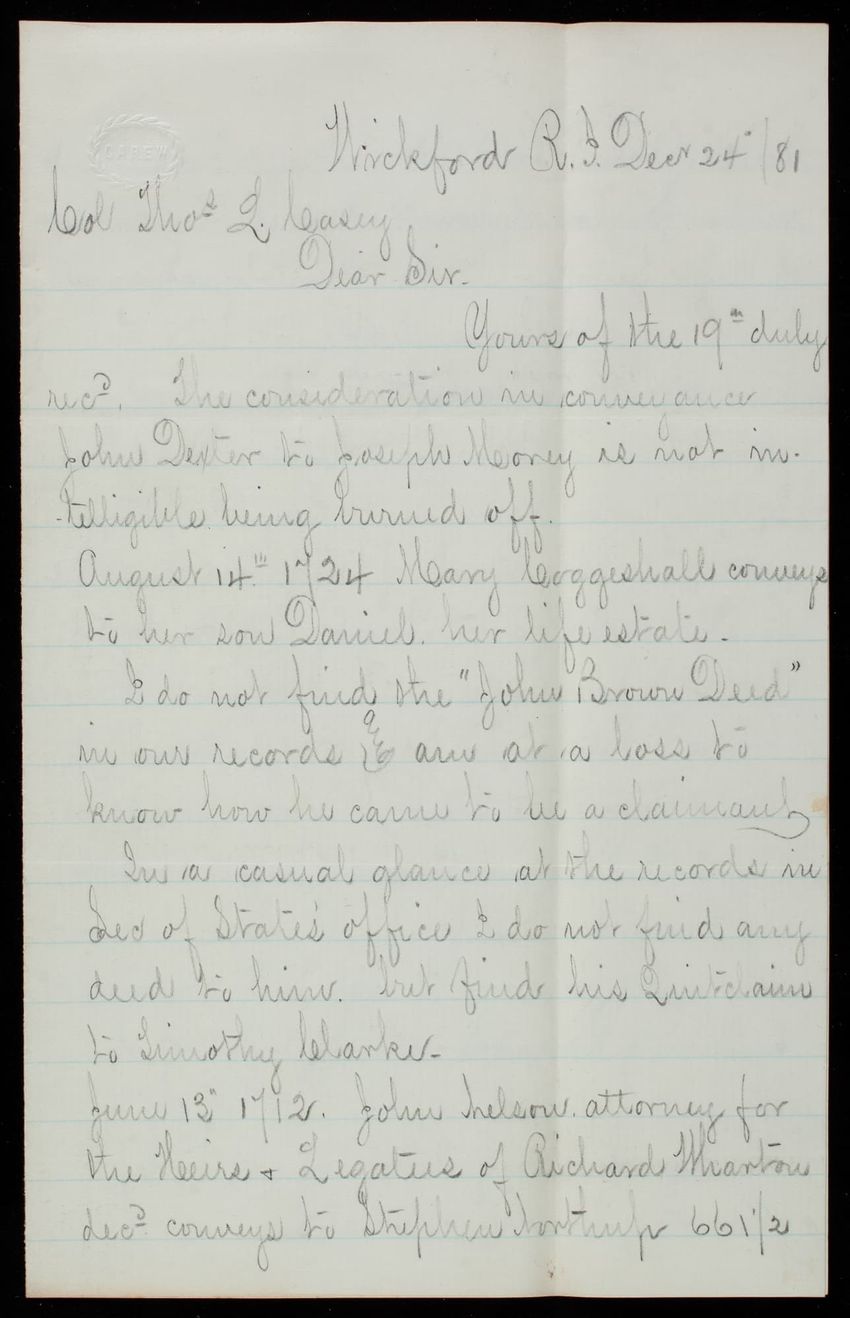 CAREW
Wickford R.I. Decr 24" /81
Col Thos L. Casey
Dear Sir.
Yours of the 19th duly
recd. The consideration in conveyance
John Dexter to Joseph Morey is not in-
-telligible being burned off.
August 14th 1724 Mary Coggeshall conveys
to her son Daniel. her life estate.
I do not find the "John Brown Deed"
in our records & am at a loss to
know how he came to be a claimant
In a casual glance at the records in
Sec of State's office I do not find any
deed to him. but find his Quitclaim
to Timothy Clarke-
June 13" 1712. John Nelson. attorney for
the Heirs + Legatees of Richard Wharton
decd conveys to Stephen Northup 661 1/2